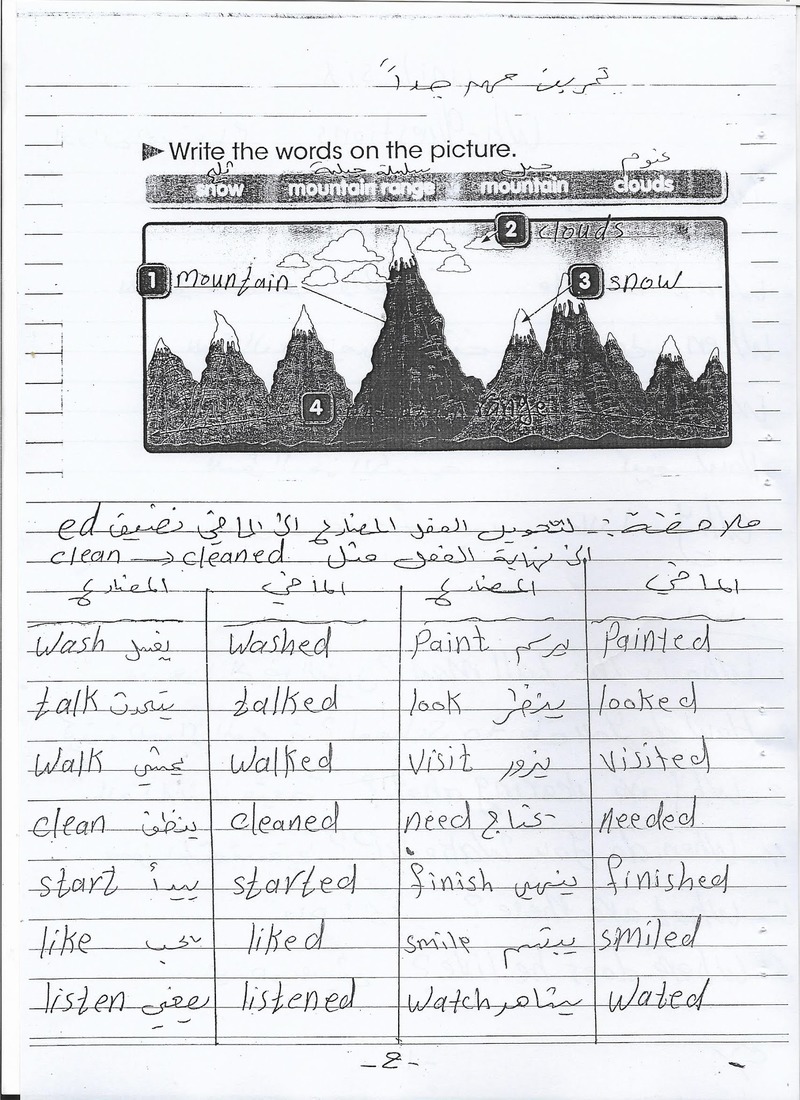 تمرين مهم جداً
Write the words on the picture.
ثلج سلسلة جبلية جبل غيوم
snow mountain range mountain clouds
2 clouds
1 mountain
3 snow
4 range
ملاحظة :- لتحويل الفعل المضارع الى الماضي نضيف ed
الى نهاية الفعل مثل clean → cleaned
المضارع الماضي المضارع الماضي
wash يغسل washed paint يرسم painted
talk يتحدث talked look ينظر looked
walk يمشي walked visit يزور visited
clean ينظف cleaned need يحتاج needed
start يبدأ started finish ينهي finished
like يحب liked smile يبتسم smiled
listen يصغي listened watch يشاهد wated
-2-